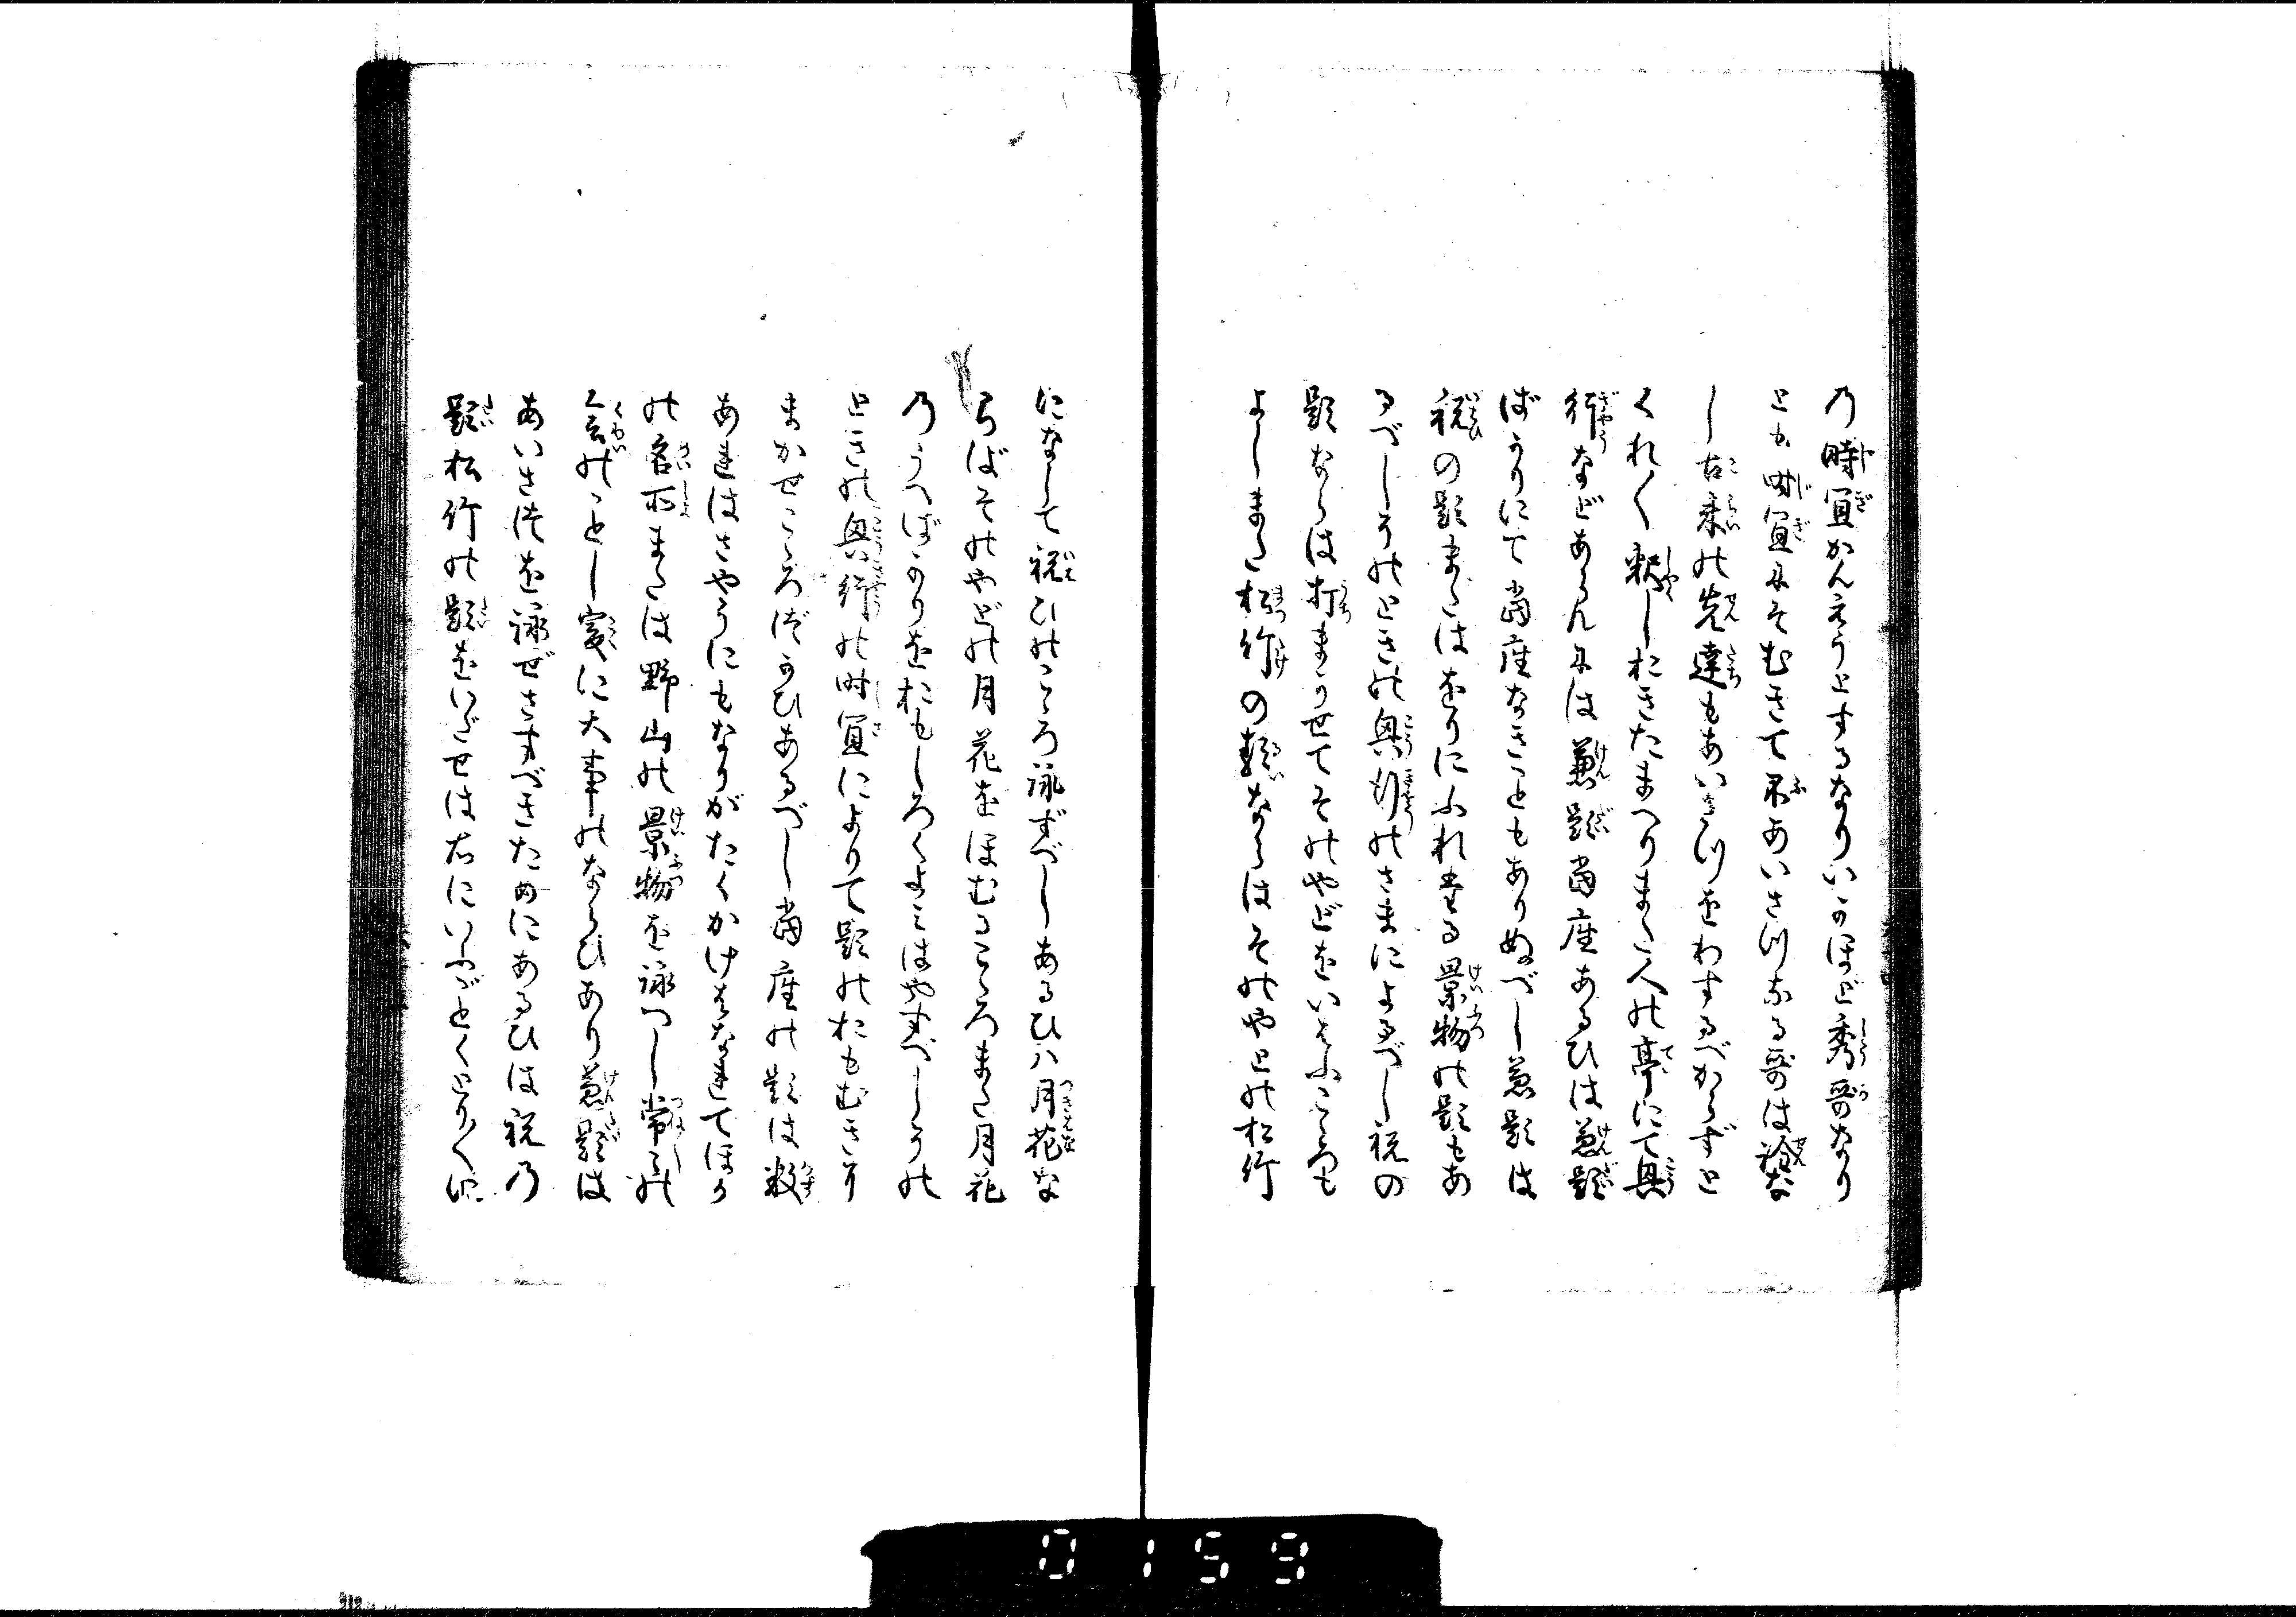 乃時宜かんえうとするなりいかほど秀哥なり
とも時宜にそむきて不あいさつなる哥は詮な
し古来の先達もあいさつをわするべからずと
くれ〳〵釈しおきたまへりまた人の亭にて興
行などあらんには兼題当座あるひは兼題
ばかりにて当座なきこともありぬべし兼題は
祝の題または をりにふれたる景物の題もあ
るべしその ときの興行のさまによるべし祝の
題ならは打まかせてそのやどをいはふこゝろも
よしまた松竹の題ならはそのやとの松竹
になして祝ひのこゝろ詠ずべしあるひハ月花な
らばそのやどの月花をほむるこゝろまた月花
のうへばかりをおもしろくよみはやすべしその
ときの興行の時宜によりて題のおもむきに
まかせこゝろづかひあるべし当座の題は数
あればさやうにもなりがたくかけはなれてほか
の名所または野山の景物を詠つし常の
会のことし宴に大事のならひあり兼題は
あいさつを詠ぜさすべきためにあるひは祝乃
題松竹の題をいだせは右にいふごとくとり〳〵に